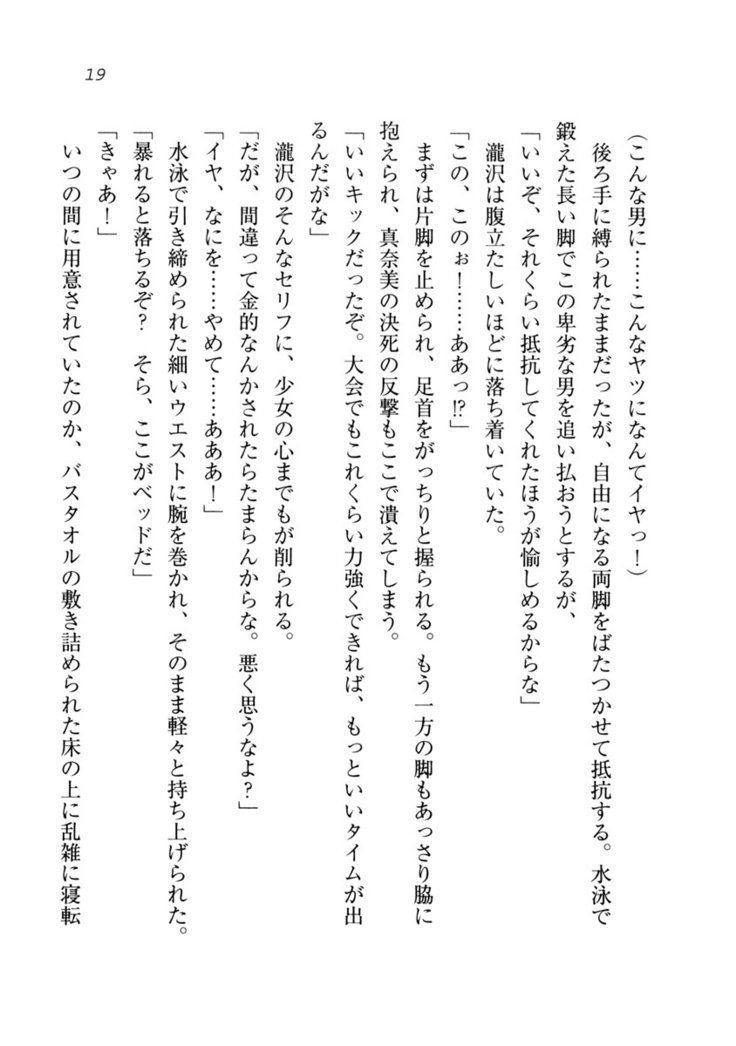 19
(こんな男に……こんなヤツになんてイヤっ!)
後ろ手に縛られたままだったが、自由になる両脚をばたつかせて抵抗する。水泳で
鍛えた長い脚でこの卑劣な男を追い払おうとするが、
「いいぞ、それくらい抵抗してくれたほうが愉しめるからな」
瀧沢は腹立たしいほどに落ち着いていた。
「この、このぉ!……ああっ!?」
まずは片脚を止められ、足首をがっちりと握られる。もう一方の脚もあっさり脇に
抱えられ、真奈美の決死の反撃もここで潰えてしまう。
「いいキックだったぞ。大会でもこれくらい力強くできれば、もっといいタイムが出
るんだがな」
瀧沢のそんなセリフに、少女の心までもが削られる。
「だが、間違って金的なんかされたらたまらんからな。悪く思うなよ?」
「イヤ、なにを……やめて……あああ!」
水泳で引き締められた細いウエストに腕を巻かれ、そのまま軽々と持ち上げられた。
「暴れると落ちるぞ? そら、ここがベッドだ」
「きゃあ!」
いつの間に用意されていたのか、バスタオルの敷き詰められた床の上に乱雑に寝転